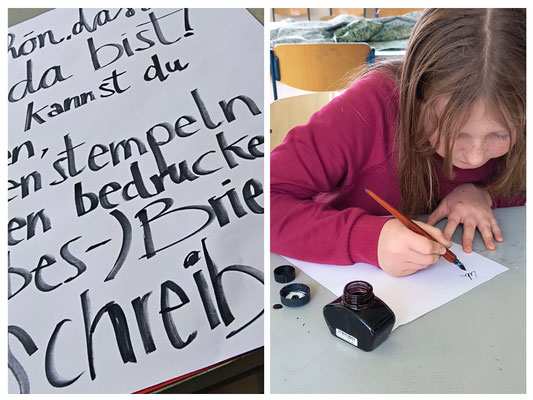 hön, das
da bist!
kannst du
en,
en stempeln
en bedrucke
bes-) Brie
Schreib